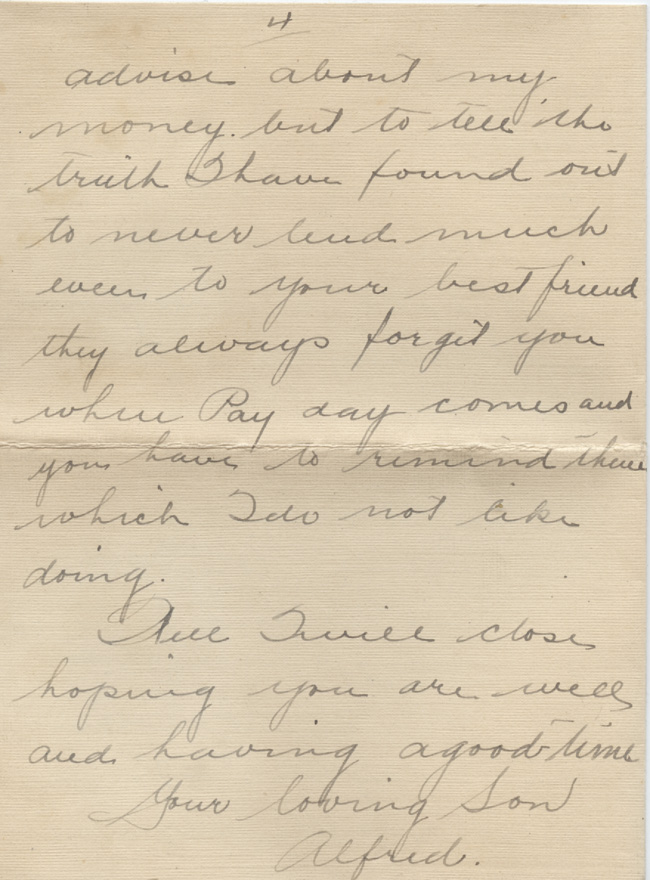 4
advise about my
money. but to tell the
truth I have found out
to never lend much
even to your best friend
they always forget you
when Pay day comes and
you have to remind them
which I do not like
doing.
Well I will close
hoping you are well
and having a good time
Your loving Son
Alfred.